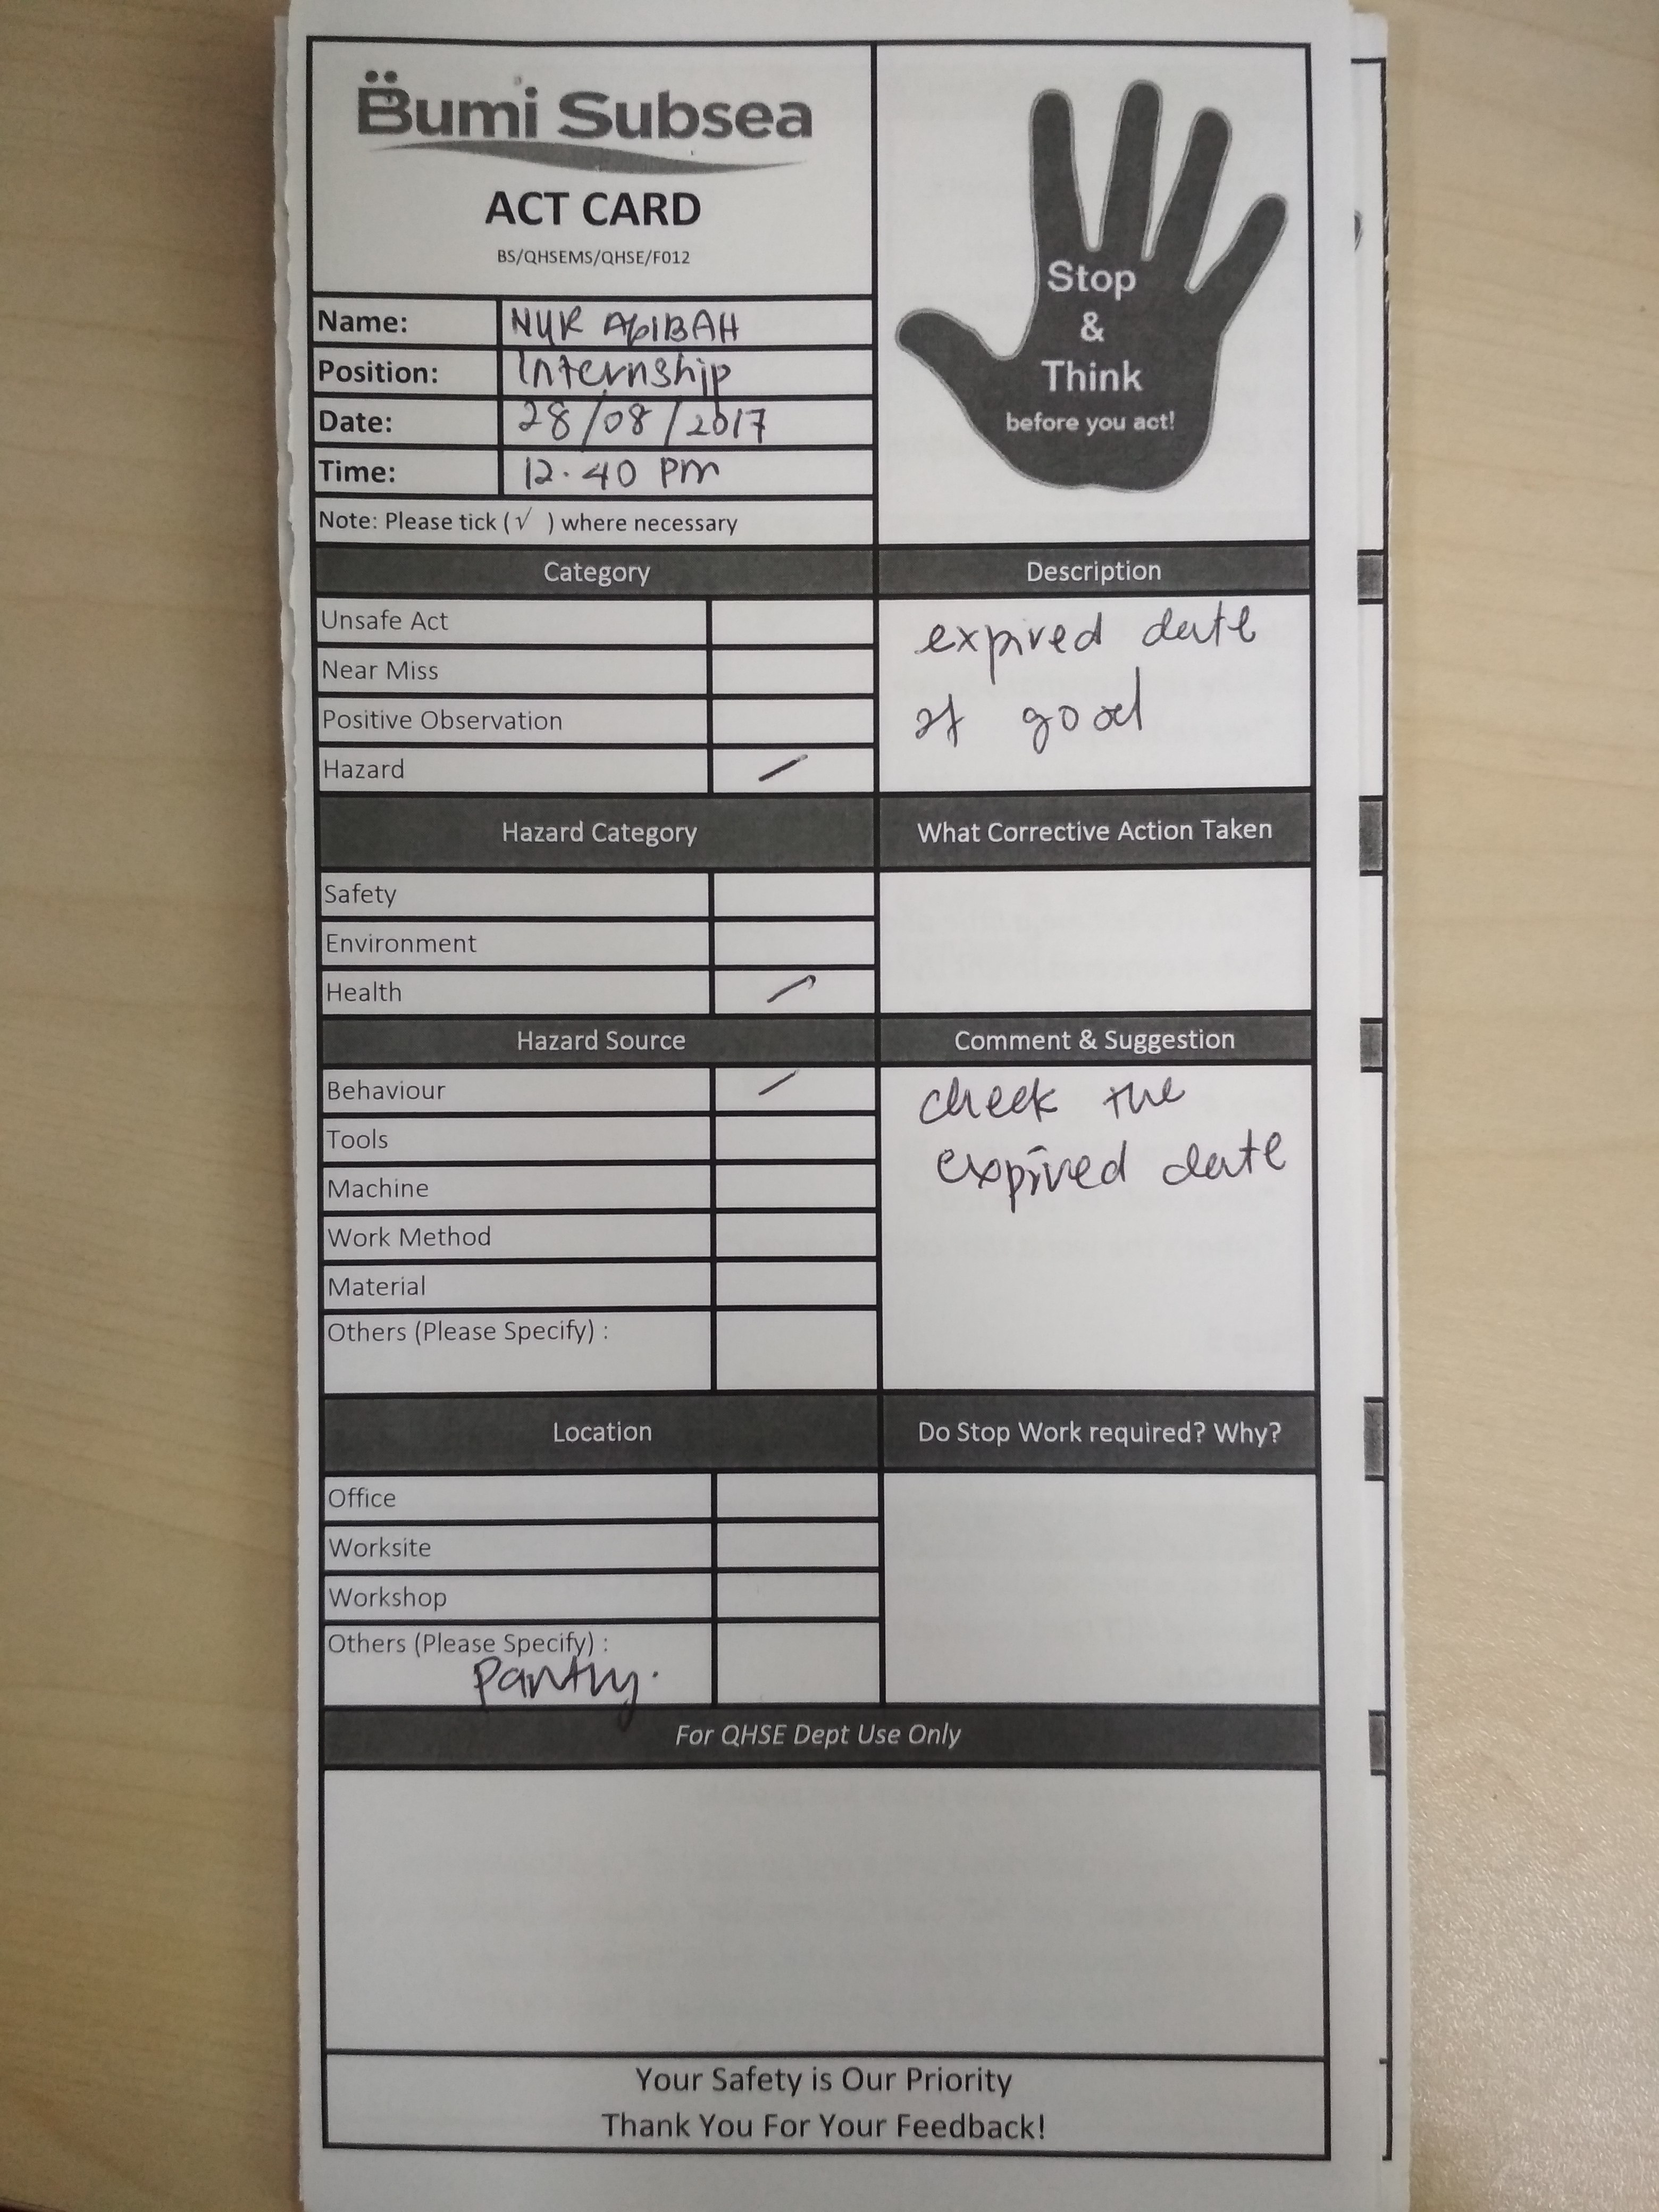 Bumi Subsea
ACT CARD
BS/QHSEMS/QHSE/F012
Stop
&
Think
before you act!
Name: NUR
Position: Internship
Date: 28/08/2017
Time: 12.40 PM
Note: Please tick (√ ) where necessary
Category
Unsafe Act
Near Miss
Positive Observation
Hazard /
Description
expired date
of good
Hazard Category
Safety
Environment
Health /
What Corrective Action Taken
Hazard Source
Behaviour /
Tools
Machine
Work Method
Material
Others (Please Specify) :
Comment & Suggestion
check the
expired date
Location
Office
Worksite
Workshop
Others (Please Specify) :
Pantry.
Do Stop Work required? Why?
For QHSE Dept Use Only
Your Safety is Our Priority
Thank You For Your Feedback!